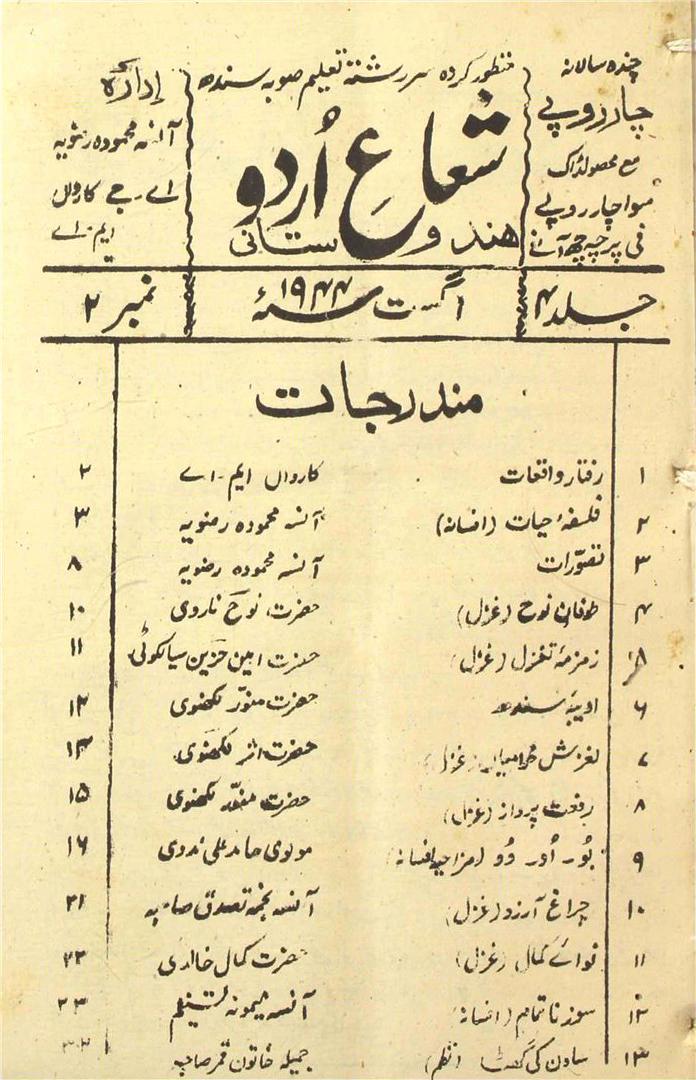 منظور کردہ سررشتۂ تعلیم صوبہ سندھ
چندہ سالانہ
چار روپے
مع محصولڈاک
سوا چار روپے
فی پرچہ چھ آنے
شعاعِ اُردو
هندوستانی
إدارہ
آنسہ محمودہ رضویہ
اے۔ جے کارواں
ایم۔اے
جلد ۴
اگست ۱۹۴۴ سنہٴ
نمبر ۲
مندرجات
۱ رفتار واقعات کارواں ایم۔اے ۲
۲ فلسفۂ حیات (افسانہ) آنسہ محمودہ رضویہ ۳
۳ تصوّرات آنسہ محمودہ رضویہ ۸
۴ طوفانِ نوح (غزل) حضرت نوحؔ ناروی ۱۰
۵ زمزمۂ تغزل (غزل) حضرت امین حزیں سیالکوٹی ۱۱
۶ ادیبۂ سندھ حضرت منوّر لکھنوی ۱۲
۷ لغزش (غزل) حضرت اثر لکھنوی ۱۴
۸ رفعت پرواز (غزل) حضرت منوّر لکھنوی ۱۵
۹ بُور اور دُو (مزاحیہ افسانہ) مولوی حامد علی ندوی ۱۶
۱۰ چراغ آرزو (غزل) آنسہ نجمہ تصدق صاحبہ ۲۱
۱۱ نوائے کمال (غزل) حضرت کمال خالدی ۲۲
۱۲ سوز ناتمام (افسانہ) آنسہ میمونہ تسنیم ۲۳
۱۳ ساون کی گھٹا (نظم) جمیلہ خاتون قمر صاحبہ